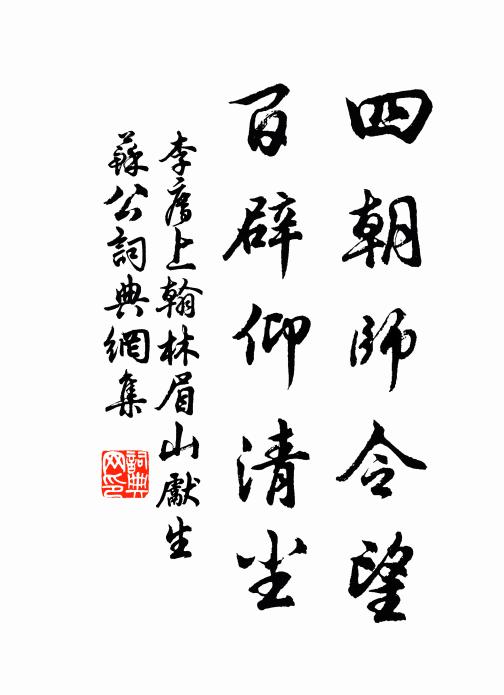 四朝師令望
百辟仰清尘
李廌上翰林眉山獻生
蘇公詞典網集
詞典
网印